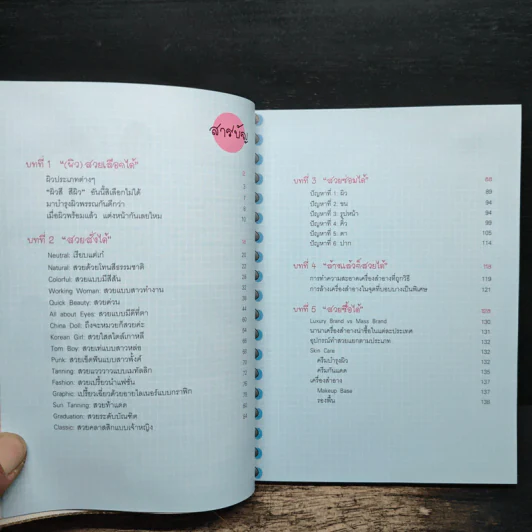 สารบัญ
บทที่ 1 "(ผิว) สวยเลือกได้"
ผิวประเภทต่างๆ
"ผิวสี สีผิว" อันนี้สิเลือกไม่ได้
มาบำรุงผิวพรรณกันดีกว่า
เมื่อผิวพร้อมแล้ว แต่งหน้ากันเลยไหม
บทที่ 2 "สวยสั่งได้"
Neutral: เรียบแต่เก๋
Natural: สวยด้วยโทนสีธรรมชาติ
Colorful: สวยแบบมีสีสัน
Working Woman: สวยแบบสาวทำงาน
Quick Beauty: สวยด่วน
All about Eyes: สวยแบบมีดีที่ตา
China Doll: ถึงจะหมวยก็สวยค่ะ
Korean Girl: สวยใสสไตล์เกาหลี
Tom Boy: สวยเท่แบบสาวหล่อ
Punk: สวยเซ็ดฟินแบบสาวพั้งค์
Tanning: สวยแวววาวแบบเมทัลลิก
Fashion: สวยเปรี้ยวนำแฟชั่น
Graphic: เปรี้ยวเฉี่ยวด้วยอายไลเนอร์แบบกราฟิก
Sun Tanning: สวยท้าแดด
Graduation: สวยระดับบัณฑิต
Classic: สวยคลาสสิกแบบเจ้าหญิง
บทที่ 3 "สวยซ่อมได้" 88
ปัญหาที่ 1: ผิว 89
ปัญหาที่ 2: ขน 94
ปัญหาที่ 3: รูปหน้า 94
ปัญหาที่ 4: คิ้ว 99
ปัญหาที่ 5: ตา 105
ปัญหาที่ 6: ปาก 114
บทที่ 4 "ล้างแล้วก็สวยได้" 118
การทำความสะอาดเครื่องสำอางที่ถูกวิธี 119
การล้างเครื่องสำอางในจุดที่บอบบางเป็นพิเศษ 121
บทที่ 5 "สวยซื้อได้" 128
Luxury Brand vs Mass Brand 130
นานาเครื่องสำอางน่าซื้อในแต่ละประเทศ 131
อุปกรณ์ทำสวยแยกตามประเภท 132
Skin Care 132
ครีมบำรุงผิว 132
ครีมกันแดด 135
เครื่องสำอาง 137
Makeup Base 137
รองพื้น 138